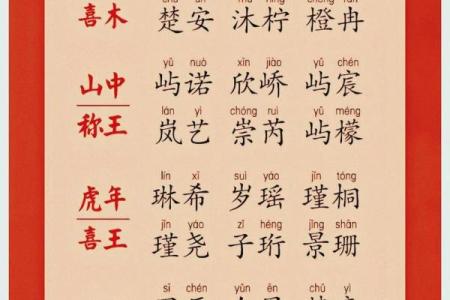 喜木 楚安 沐柠 橙冉
yǔ nuò xīn jiào yǔ chén
山中 屿诺 欣峤 屿宸
lán yì chóng ruì yǔ méng
称王 岚艺 崇芮 屿檬
lín xī suì yáo jǐn tóng
虎年 琳希 岁瑶 瑾桐
jǐn yáo zǐ héng jǐng shān
喜王 瑾尧 子珩 景珊
sī chén